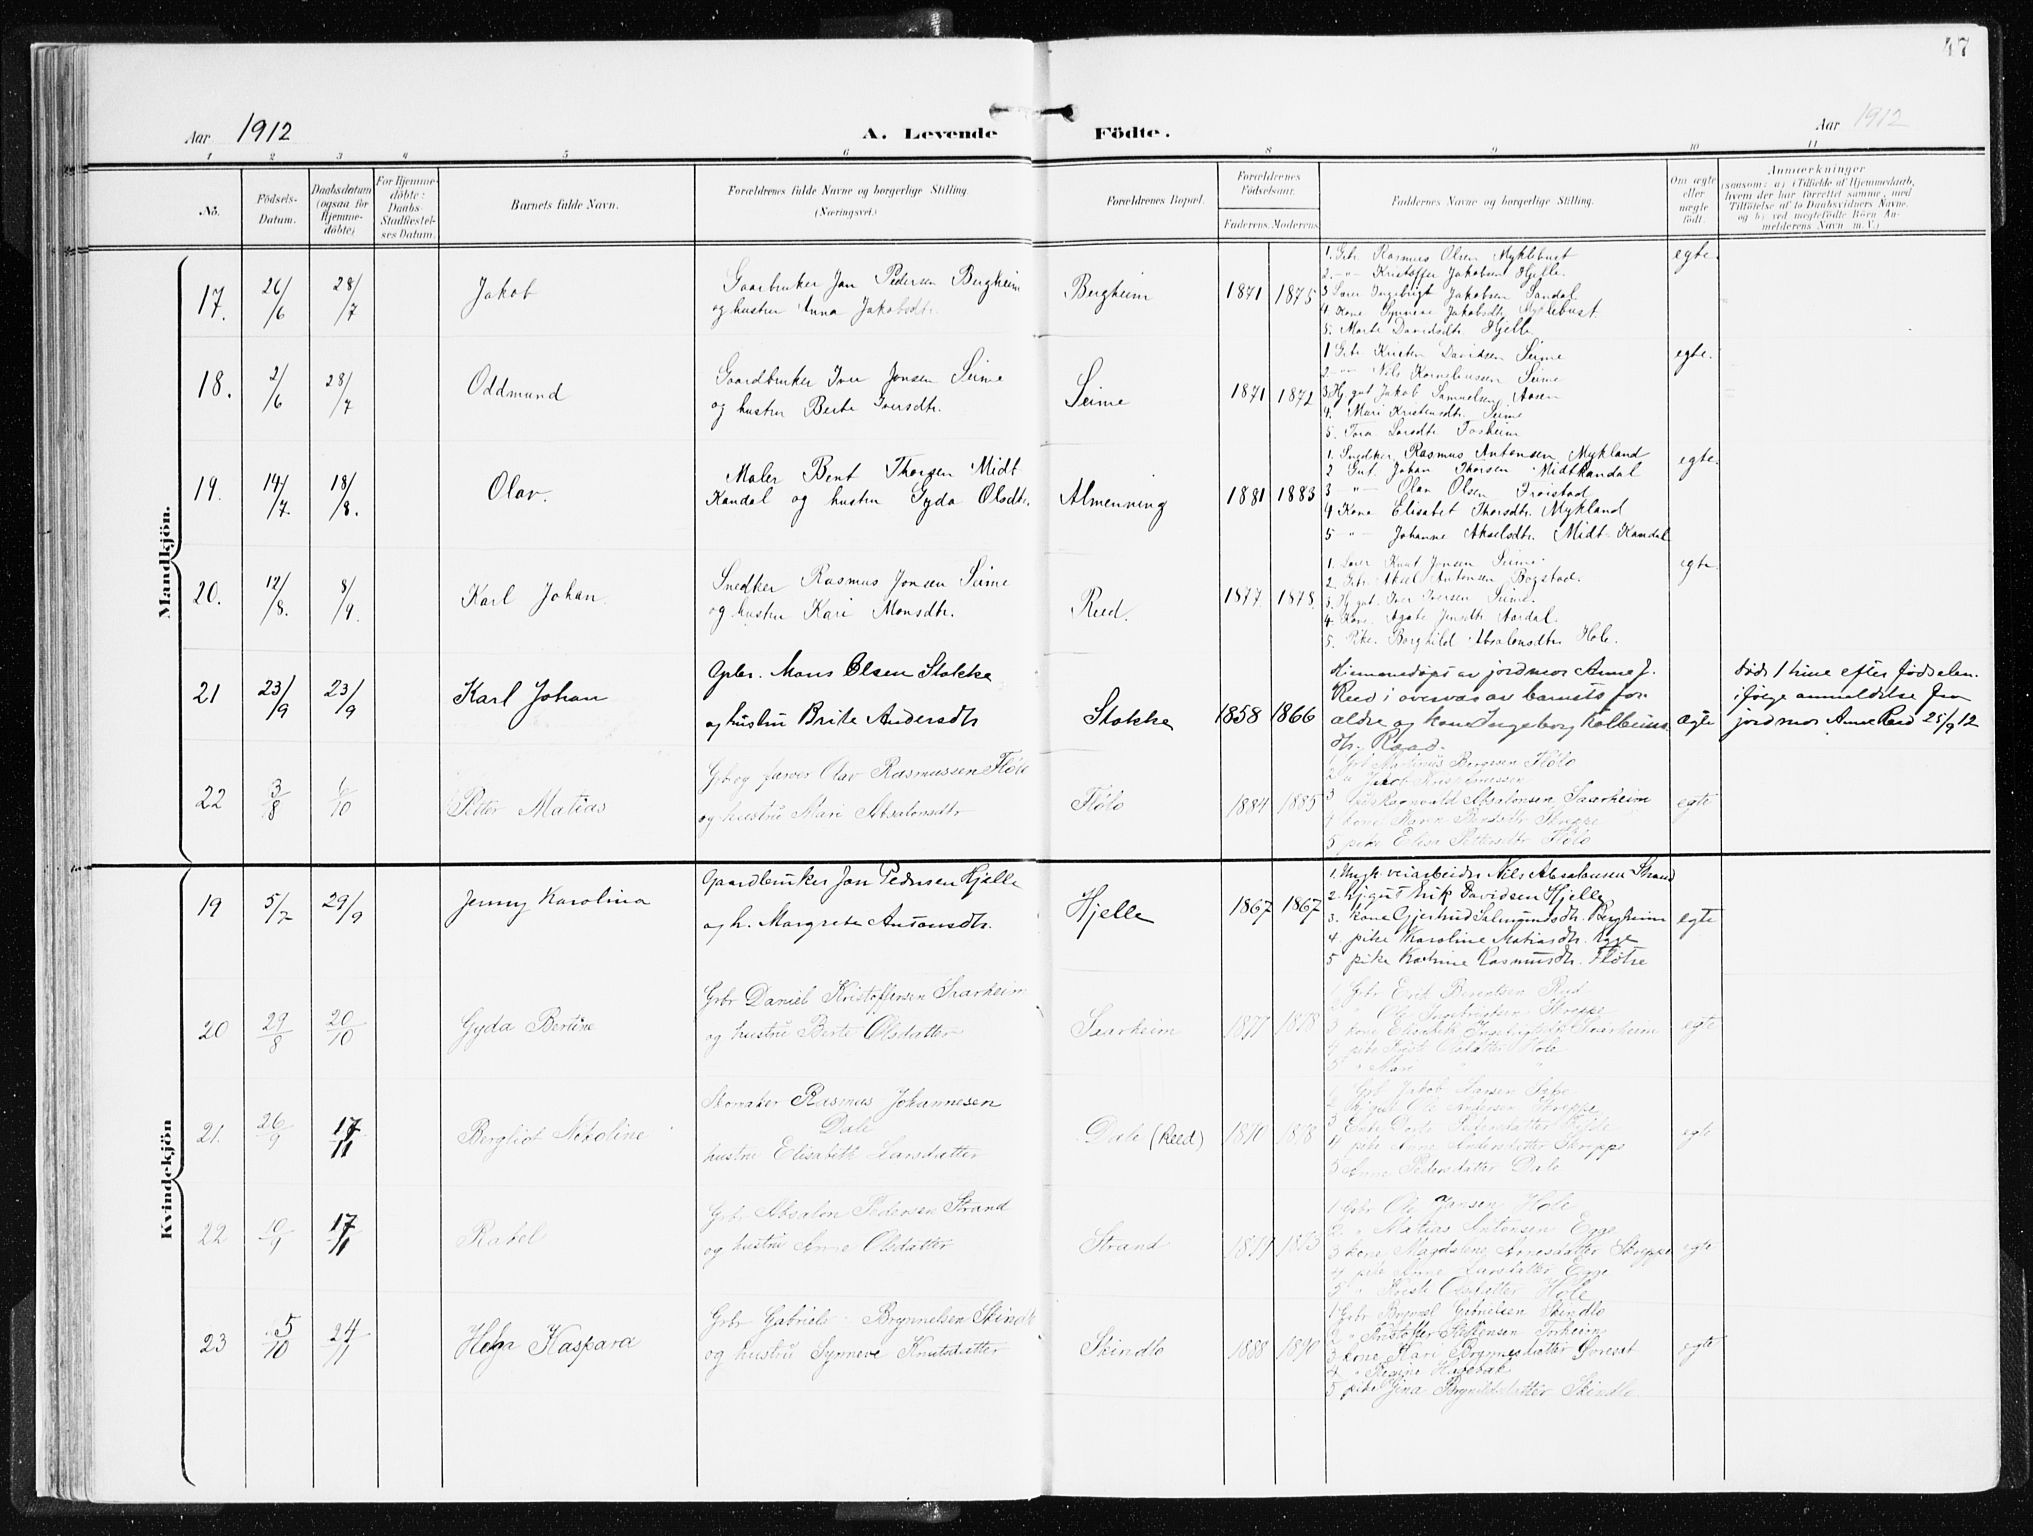 47
Aar 1912
A. Levende Födte.
Aar 1912
1 2 3 4 5 6 8 9 10 11
No.
Födsels-
Datum.
Daabsdatum
(ogsaa for
Hjemme-
döbte)
For Hjemme-
döbte:
Daabs-
Stadfæstel-
ses Datum.
Barnets fulde Navn.
Forældrenes fulde Navne og borgerlige Stilling.
(Næringsvei.)
Forældrenes Bopæl.
Forældrenes
Födselsaar.
Faderens. Moderens.
Faddernes Navne og borgerlige Stilling.
Om ægte
eller
uægte
födt.
Anmærkninger
(saasom: a) i Tilfælde af Hjemmedaab,
hvem der har forrettet samme, med
Tilföielse af to Daabsvidners Navne,
og b) ved uægtefödte Börn An-
melderens Navn m. V.)
Mandkjön.
17. 26/6 28/7 Jakob
Gaarbruker Jon Pedersen Bergheim
og hustru Anna Jakobsdtr.
Bergheim 1871 1875
1. Gbr. Rasmus Olsen Myklebust
2. -"- Kristoffer Jakobsen Hjelle
3 Lærer Ingebrigt Jakobsen Sandal
4 Kone Synneve Jakobsdtr Myklebust
5. Marte Davidsdtr Hjelle
egte.
18. 2/6 28/7 Oddmund
Gaardbruker Iver Jonsen Seime
og hustru Berte Iversdtr.
Seime 1871 1872
1 Gbr. Kristen Davidsen Seime
2 -"- Nils Korneliussen Seime
3 Hj. gut Jakob Samuelsen Aasen
4. Mari Kristensdtr. Seime
5. Tora Larsdtr Forheim
egte.
19. 14/7 18/8. Olav.
Maler Bent Thorsen Midt
Kandal og hustru Gyda Olsdtr.
Almenning 1881 1883
1. Snedker Rasmus Antonsen Mykland
2 Gut Johan Thorsen Midtkandal
3 -"- Olav Olsen Troistad
4 Kone Elisabet Thorsdtr. Mykland
5 -"- Johanne Akselsdtr. Midt-Kandal
egte.
20. 12/8. 8/9. Karl Johan.
Snedker Rasmus Jonsen Seime
og hustru Kari Monsdtr.
Reed. 1877 1878
1. Lærer Knut Jonsen Seime
2. Gbr. Aksel Antonsen Bogstad.
3. Hj. gut. Iver Iversen Seime.
4. Kone. Agate Jensdtr Aardal.
5. Pike. Borghild Absalonsdtr. Hole.
egte
21 23/9 23/9 Karl Johan
Gbr. Mons Olsen Stokke
og hustru Brite Andersdtr
Stokke 1858 1866
Hjemmedøpt av jordmor Anne J.
Reed i overvær av barnets for-
ældre og kone Ingeborg Kolbeins-
dtr.
ægte
Død 1 time efter fødselen
ifølge anmeldelse fra
jordmor Anne Reed 25/9 12
22 3/8 6/10 Peter Matias
Gbr og farver Olav Rasmussen Fløto
og hustru Mari Absalonsdtr
Fløto 1884 1885
1 Gbr Martinus Berntsen Fløto
2 " Jacob
3 Absalonsen Saarheim
4 kone Karen Skreppe
5 pike Elisa Pettersdtr Fløto
egte
Kvindekjön
19 5/7 29/9 Jenny Karolina
Gaardbruker Jon Pedersen Hjelle
og h. Margrete Antonsdtr.
Hjelle 1867 1867
1. Nils Absalonsen Strand
2. Hj. gut Erik Davidsen Hjelle
3. kone Gjertrud Salmundsdtr. Bergheim
4. pike Karoline Matiasdtr. Egge
5 pike Katrine Rasmusdtr. Fløtre
egte
20 29/8 20/10 Gyda Bertine
Grbr Daniel Kristoffersen Saarheim
og hustru Berte Olsdatter
Saarheim 1877 1878
1 Grbr Erik Berentsen Reed
2 " Ole Ingebrigtsen Skreppe
3 kone Elisabeth Ingebrigtsdtr Saarheim
4 pike Kriste Olsdatter Hole
5 " Mari " "
egte
21. 26/9 17/11 Bergliot Nikoline
Rasmus Johannesen
Dale
hustru Elisabeth Larsdatter
Dale (Reed) 1870 1878
1 Grbr Jakob Larsen
2 Hj gut Ole Andersen Skreppe
3
4 pike Anne Andersdatter Skreppe
5 Anne Pedersdatter Dale
egte
22 10/9 17/11 Rakel
Grbr Absalon Pedersen Strand
og hustru Anne Olsdatter
Strand 1873
1 Grbr Ole Jansen Hole
2. " Matias Antonsen Egge
3 kone Magdalene Skreppe
4 pike Anne Larsdatter Egge
5 " Kriste Olsdatter Hole
egte
23 5/10 24/11 Helga Kaspara
Grbr Gabriel Brynnelsen Skindlo
og hustru Synneve Knutsdatter
Skindlo 1888 1890
1 Grbr Brynnel Gabrielsen Skindlo
2 " Kristoffer Steffensen Forheim
3 kone Kari Brynnelsdatter Føreset
4 " Regine
5 pike Gina Skindlo
egte